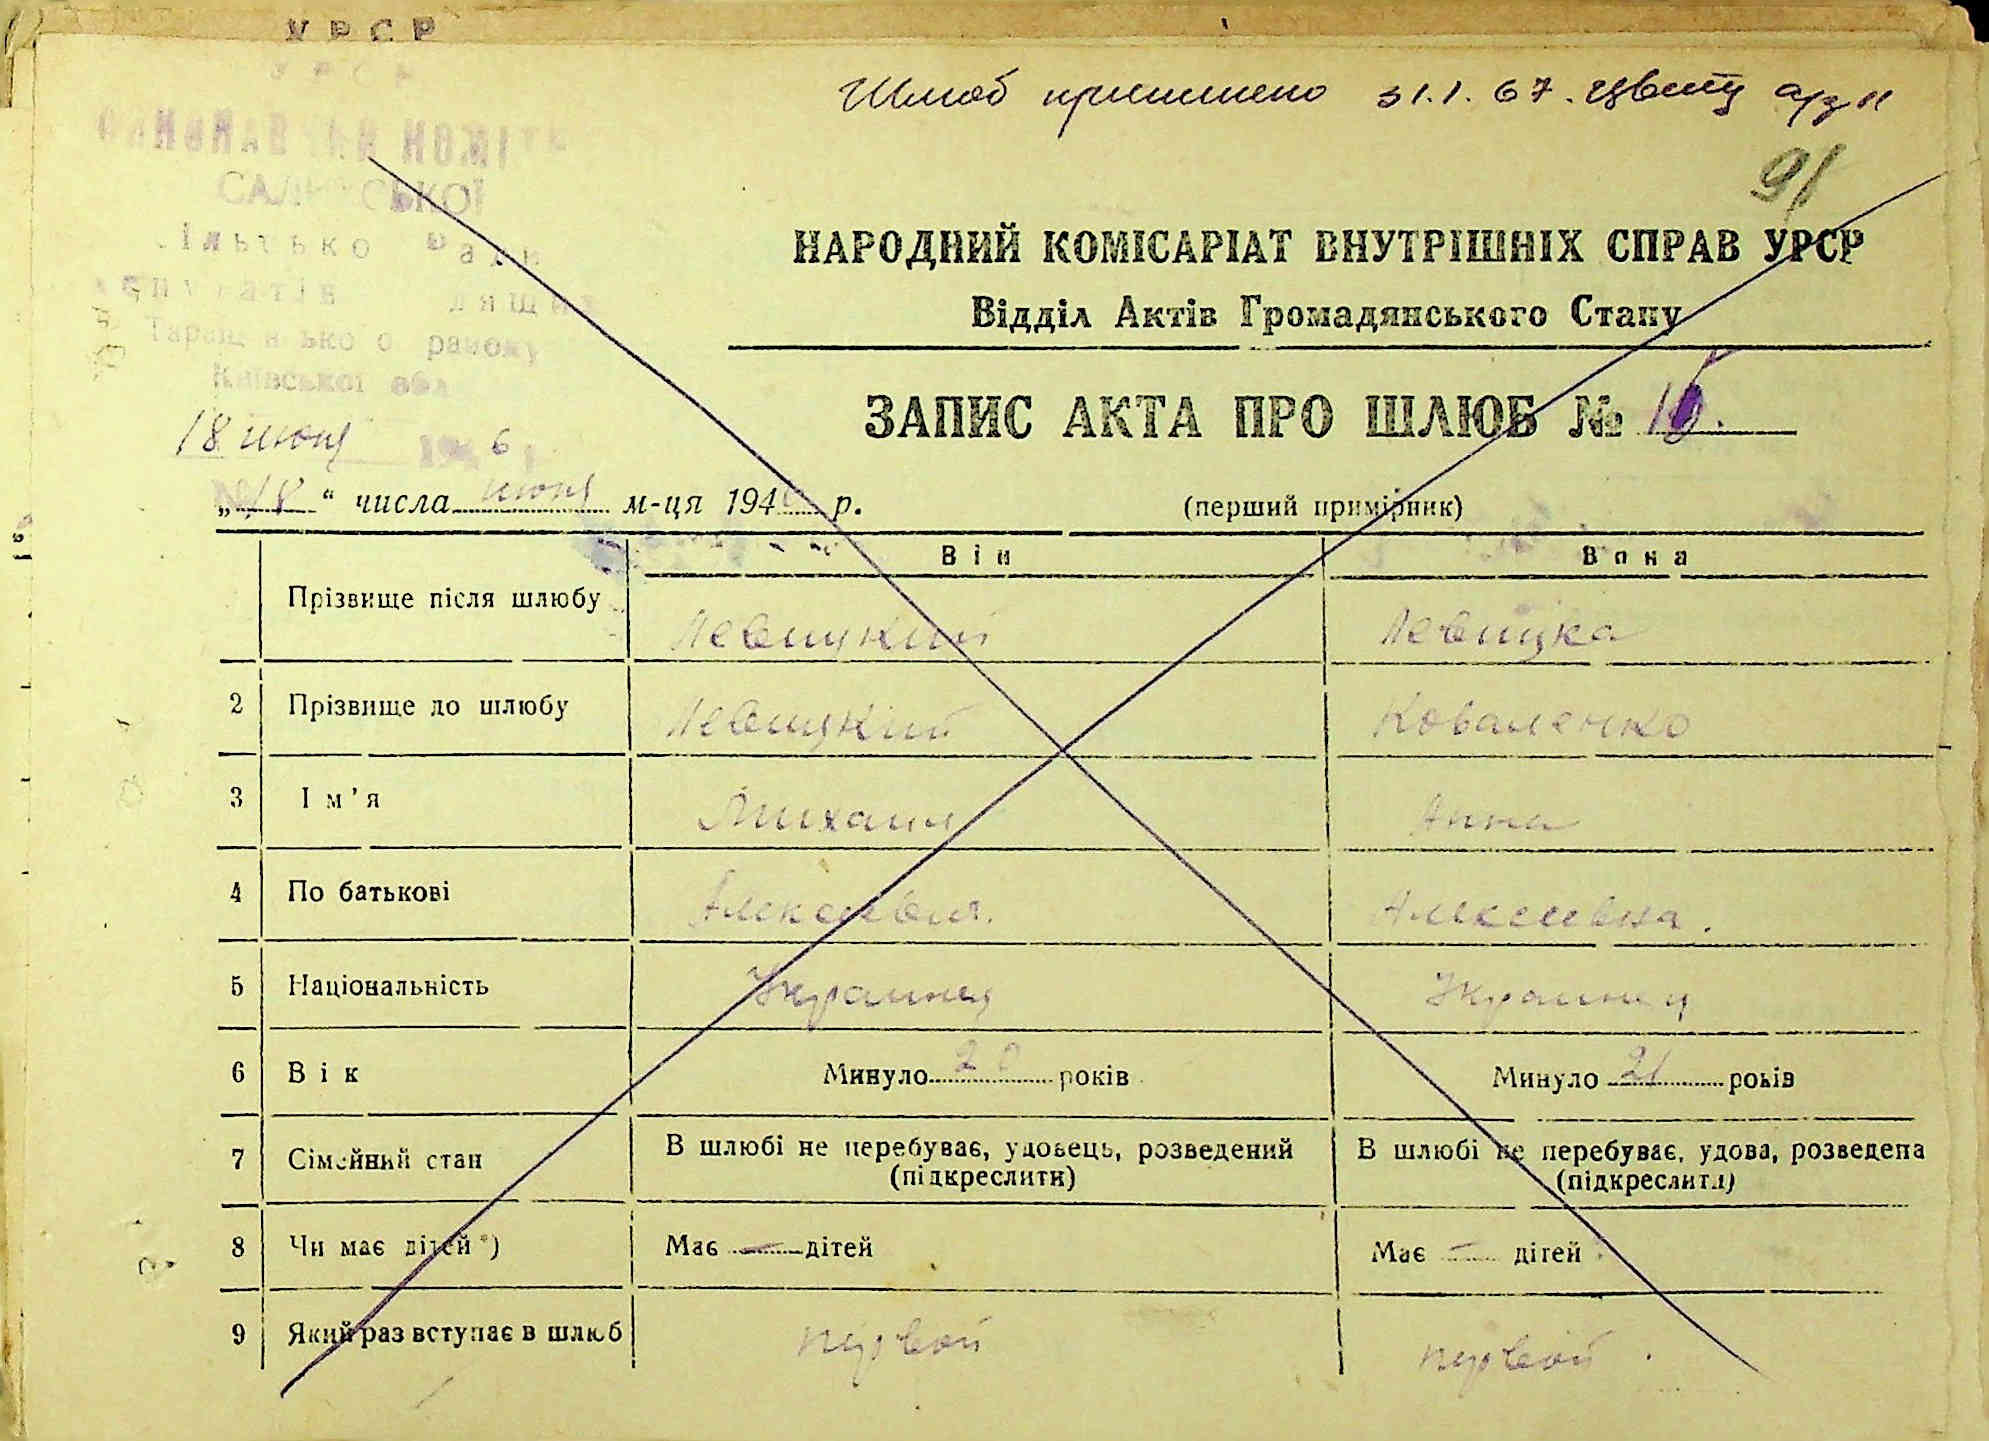 УРСР
УРСР
Шлюб припинено 31.1.67.
91
САЛИ СЬКОЇ
Ради
Київської обл
18 июня 1946 р.
НАРОДНИЙ КОМІСАРІАТ ВНУТРІШНІХ СПРАВ УРСР
Відділ Актів Громадянського Стану
ЗАПИС АКТА ПРО ШЛЮБ № 16.
„18“ числа июня м-ця 1946 р.
(перший примірник)
Він Вона
Прізвище після шлюбу Левицкий Левицка
2 Прізвище до шлюбу Левицкий Коваленко
3 Ім’я Михаил Анна
4 По батькові Алексеевич. Алексеевна.
5 Національність Украинец Украинец
6 Вік Минуло 20 років Минуло 21 років
7 Сімейний стан В шлюбі не перебуває, удовець, розведений В шлюбі не перебуває, удова, розведена
(підкреслити) (підкреслити)
8 Чи має дітей *) Має — дітей Має — дітей
9 Який раз вступає в шлюб первой первой